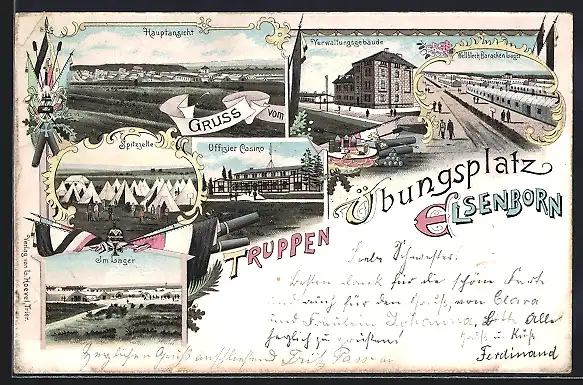 Hauptansicht
Verwaltungsgebäude
Wellblech Baracken Lager
GRUSS vom
Spitzzelte
Offizier Casino
TRUPPEN
Übungsplatz
ELSENBORN
Im Lager
Liebe Schwester.
Besten dank für die schöne Karte
und auch für den Gruß, von Clara
und Fräulein Johanna, Bitte Alle
herzlich zu grüßen
Gruß u. Kuß
Ferdinand
Herzlichen Gruß anschließend Fritz